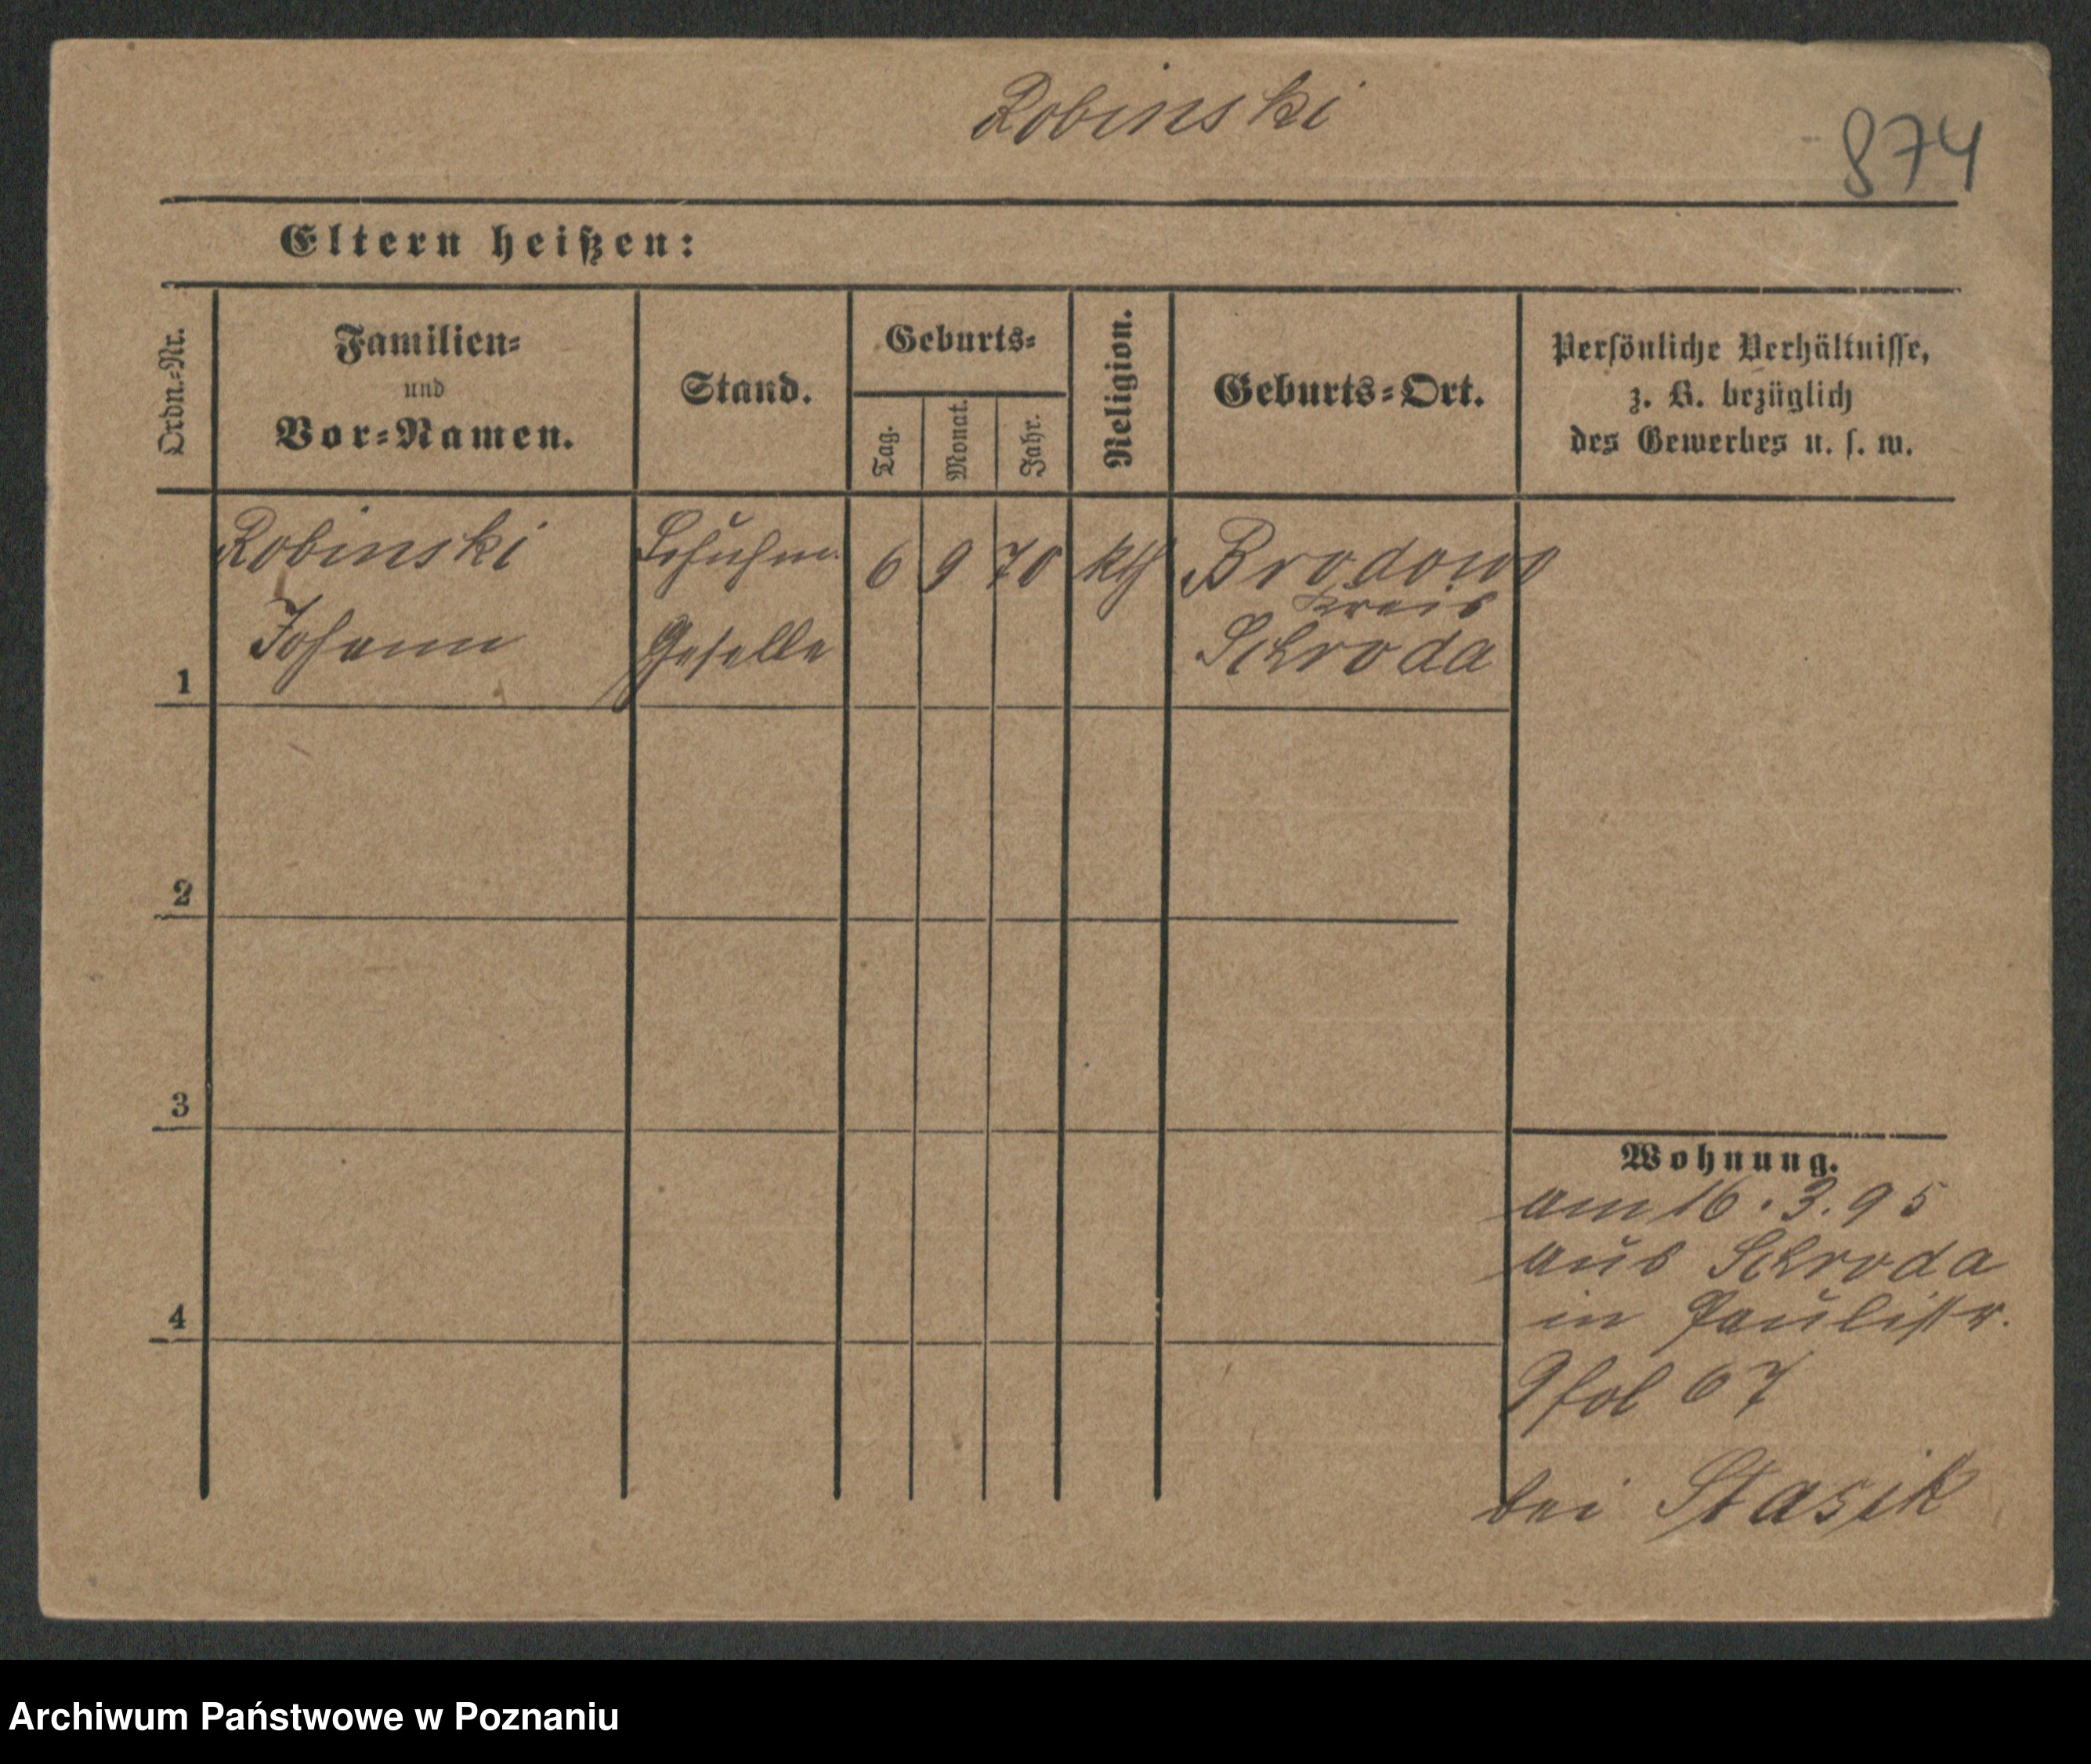 Robinski
874
Eltern heißen:
Ordn.-Nr.
Familien-
und
Vor-Namen.
Stand.
Geburts-
Tag.
Monat.
Jahr.
Religion.
Geburts-Ort.
Persönliche Verhältnisse,
z. B. bezüglich
des Gewerbes u. s. w.
1
Robinski
Johann
Schuhm.
Geselle
6 9 70 kth
Brodowo
Kreis
Schroda
2
3
4
Wohnung.
am 16.3.95
aus Schroda
in Paulistr.
9 fol 67
bei Stasik
Archiwum Państwowe w Poznaniu